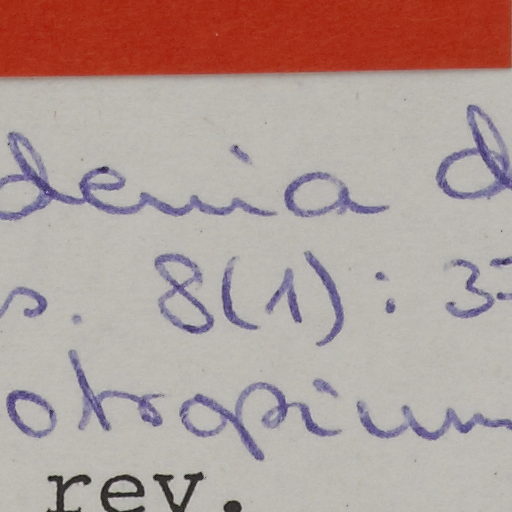 denia d
s. 8(1): 3
otropium
rev.